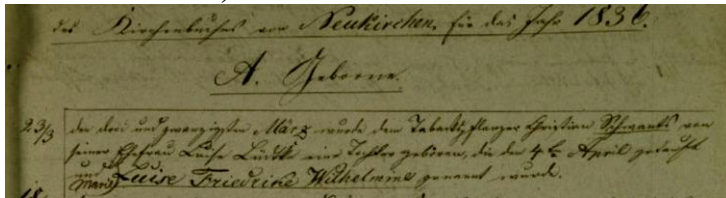 des Kirchenbuches von Neukirchen. für das Jahr 1836.
A. Geborne.
23/3 den drei und zwanzigsten März wurde dem Tabackspflanzer Christian Schwants von
seiner Ehefrau Luise Lüdtke eine Tochter geboren, die den 4t. April getauft
und Marie Luise Friedrike Wilhelmine genannt wurde.